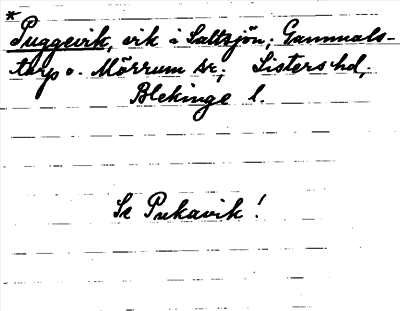 * Puggevik, vik i Saltsjön; Gammals-
torp o. Mörrum sr; Listers hd,
Blekinge l.
Se Pukavik!